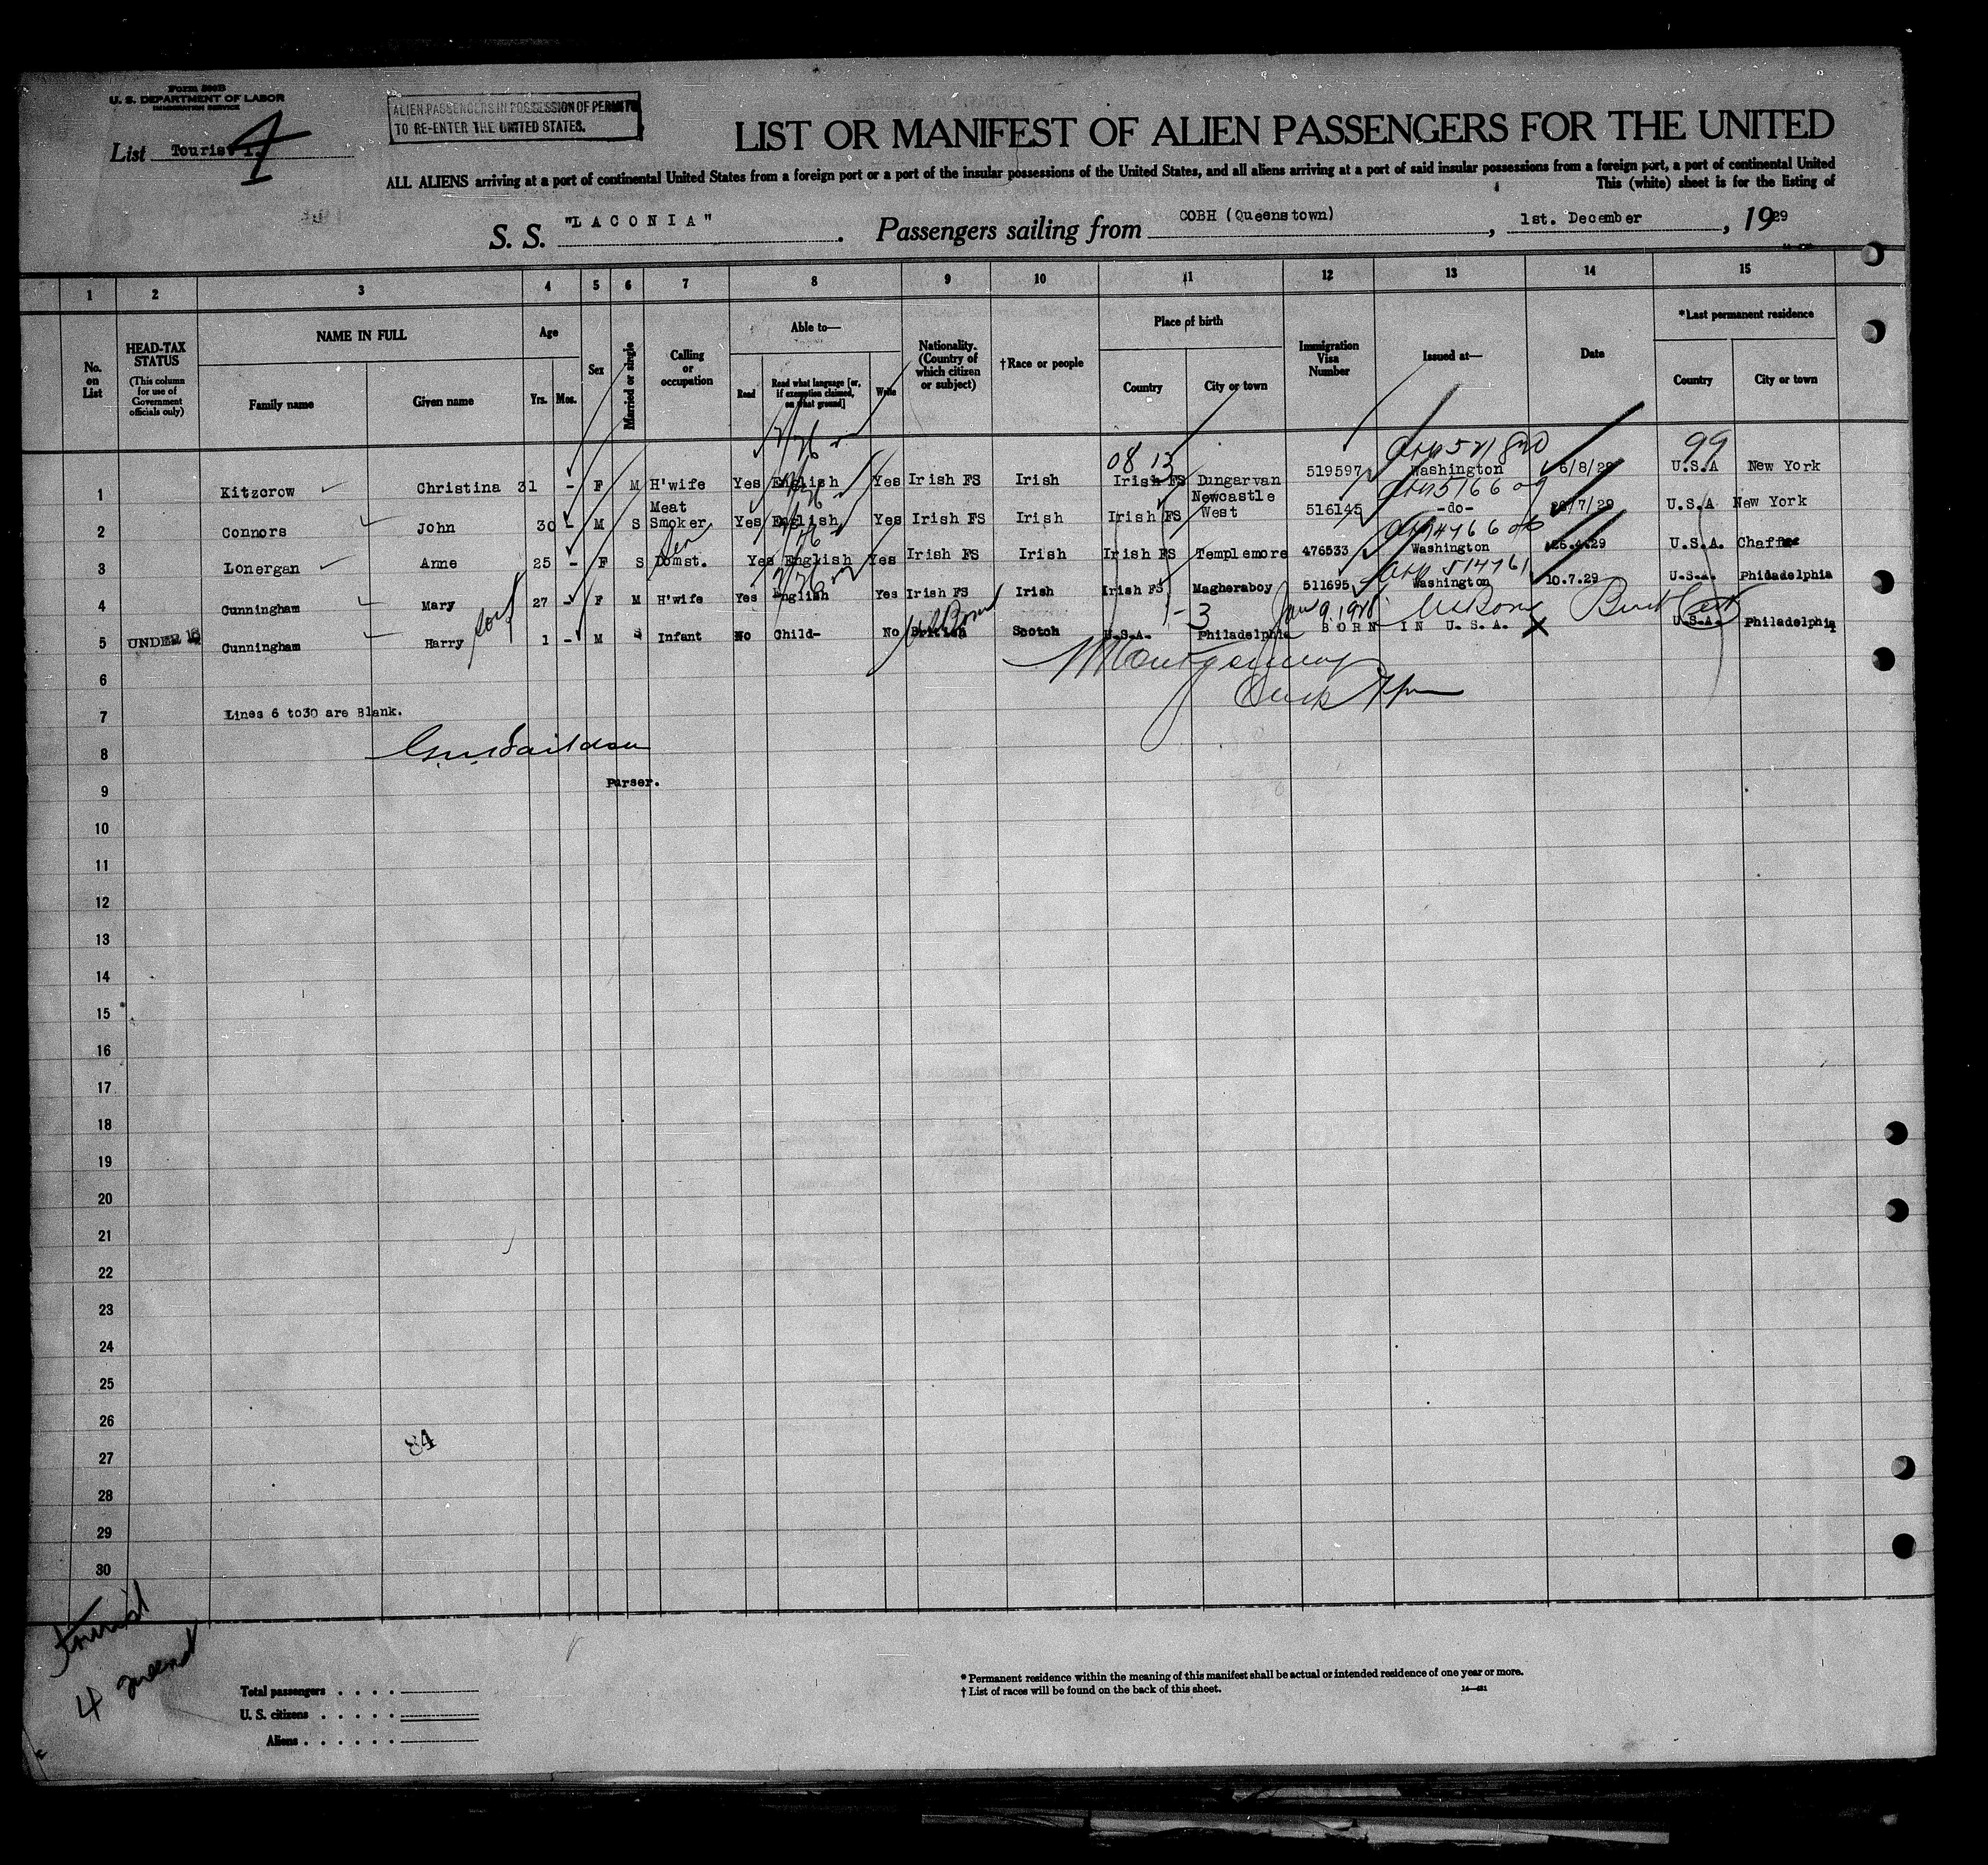 Form 500B
U. S. DEPARTMENT OF LABOR
IMMIGRATION SERVICE
List Tourist 1. 4
ALIEN PASSENGERS IN POSSESSION OF PERMITS
TO RE-ENTER THE UNITED STATES.
LIST OR MANIFEST OF ALIEN PASSENGERS FOR THE UNITED
ALL ALIENS arriving at a port of continental United States from a foreign port or a port of the insular possessions of the United States, and all aliens arriving at a port of said insular possessions from a foreign port, a port of continental United
This (white) sheet is for the listing of
S. S. "LACONIA". Passengers sailing from COBH (Queenstown), 1st. December, 1929
1 2 3 4 5 6 7 8 9 10 11 12 13 14 15
No. on List
HEAD-TAX STATUS
(This column for use of Government officials only)
NAME IN FULL
Family name Given name
Age
Yrs. Mos.
Sex
Married or single
Calling or occupation
Able to—
Read Read what language [or, if exemption claimed, on what ground] Write
Nationality. (Country of which citizen or subject)
†Race or people
Place of birth
Country City or town
Immigration Visa Number
Issued at—
Date
*Last permanent residence
Country City or town
08 13 99
1 Kitzcrow Christina 31 - F M H'wife Yes English Yes Irish FS Irish Irish FS Dungarvan 519597 Washington 6/8/29 U.S.A New York
2 Connors John 30 - M S Meat Smoker Yes English Yes Irish FS Irish Irish FS Newcastle West 516145 -do- /7/29 U.S.A New York
3 Lonergan Anne 25 - F S Domst. Yes English Yes Irish FS Irish Irish FS Templemore 476533 Washington 25.4.29 U.S.A. Chaffee
4 Cunningham Mary 27 - F M H'wife Yes English Yes Irish FS Irish Irish FS Magheraboy 511695 Washington 10.7.29 U.S.A. Phidadelphia
5 UNDER 16 Cunningham Harry son 1 - M S Infant No Child- No British US Born Scotch U.S.A. Philadelphia BORN IN U.S.A. U.S.A. Philadelphia
Jan 9, 1928 US Born Birth Cert
6
Montgomery
7 Lines 6 to30 are Blank.
8
Purser.
9
10
11
12
13
14
15
16
17
18
19
20
21
22
23
24
25
26
84
27
28
29
30
tourist
4
Total passengers
U. S. citizens
Aliens
* Permanent residence within the meaning of this manifest shall be actual or intended residence of one year or more.
† List of races will be found on the back of this sheet.